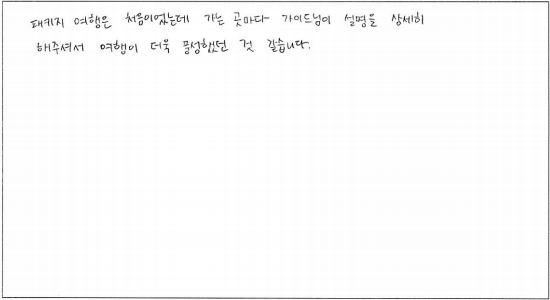 패키지 여행은 처음이었는데 가는 곳마다 가이드님이 설명을 상세히
해주셔서 여행이 더욱 풍성했던 것 같습니다.